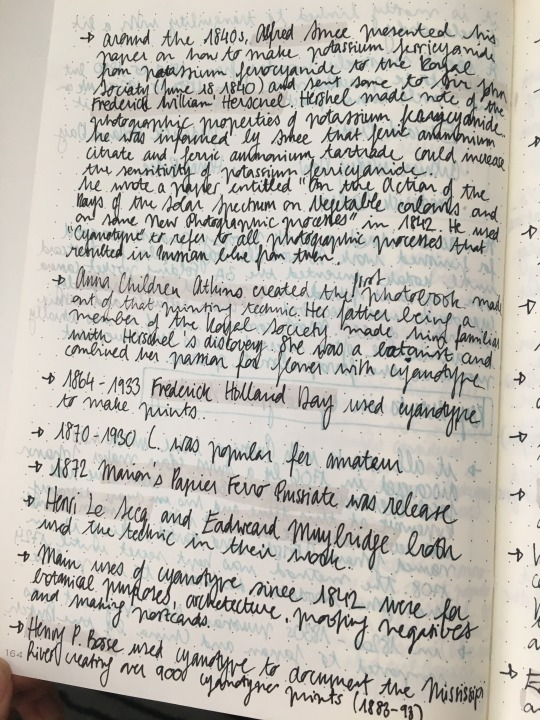 → around the 1840s, Alfred Smee presented his
paper on how to make potassium ferricyanide
from potassium ferocyanide to the Royal
Society (June 18 1840) and sent some to Sir John
Frederick William Herschel. Hershel made note of the
photographic properties of potassium ferricyanide.
he was informed by Smee that ferric ammonium
citrate and ferric ammonium tartrade could increase
the sensitivity of potassium ferricyanide.
he wrote a paper entitled "On the Action of the
Rays of the Solar Spectrum on Vegetable colours and
on some New Photographic processes" in 1842. He used
"Cyanotype" to refer to all photographic processes that
resulted in Prussian blue from them.
→ Anna Children Atkins created the first photobook made
out of that printing technic. Her father being a
member of the Royal Society made him familiar
with Herschel's discovery. She was a botanist and
combined her passion for flower with cyanotype.
→ 1864-1933 Frederick Holland Day used cyanotype
to make prints
→ 1870-1930 C. was popular for amateur
→ 1872 Marion's Papier Ferro Prussiate was release
→ Henri Le Secq and Eadweard Muybridge both
used the technic in their work.
→ Main uses of cyanotype since 1842 were for
botanical purposes, architecture, proofing negatives
and making postcards.
→ Henry P. Bosse used cyanotype to document the Mississipi
River creating over 9000 cyanotype prints (1883-93)
164